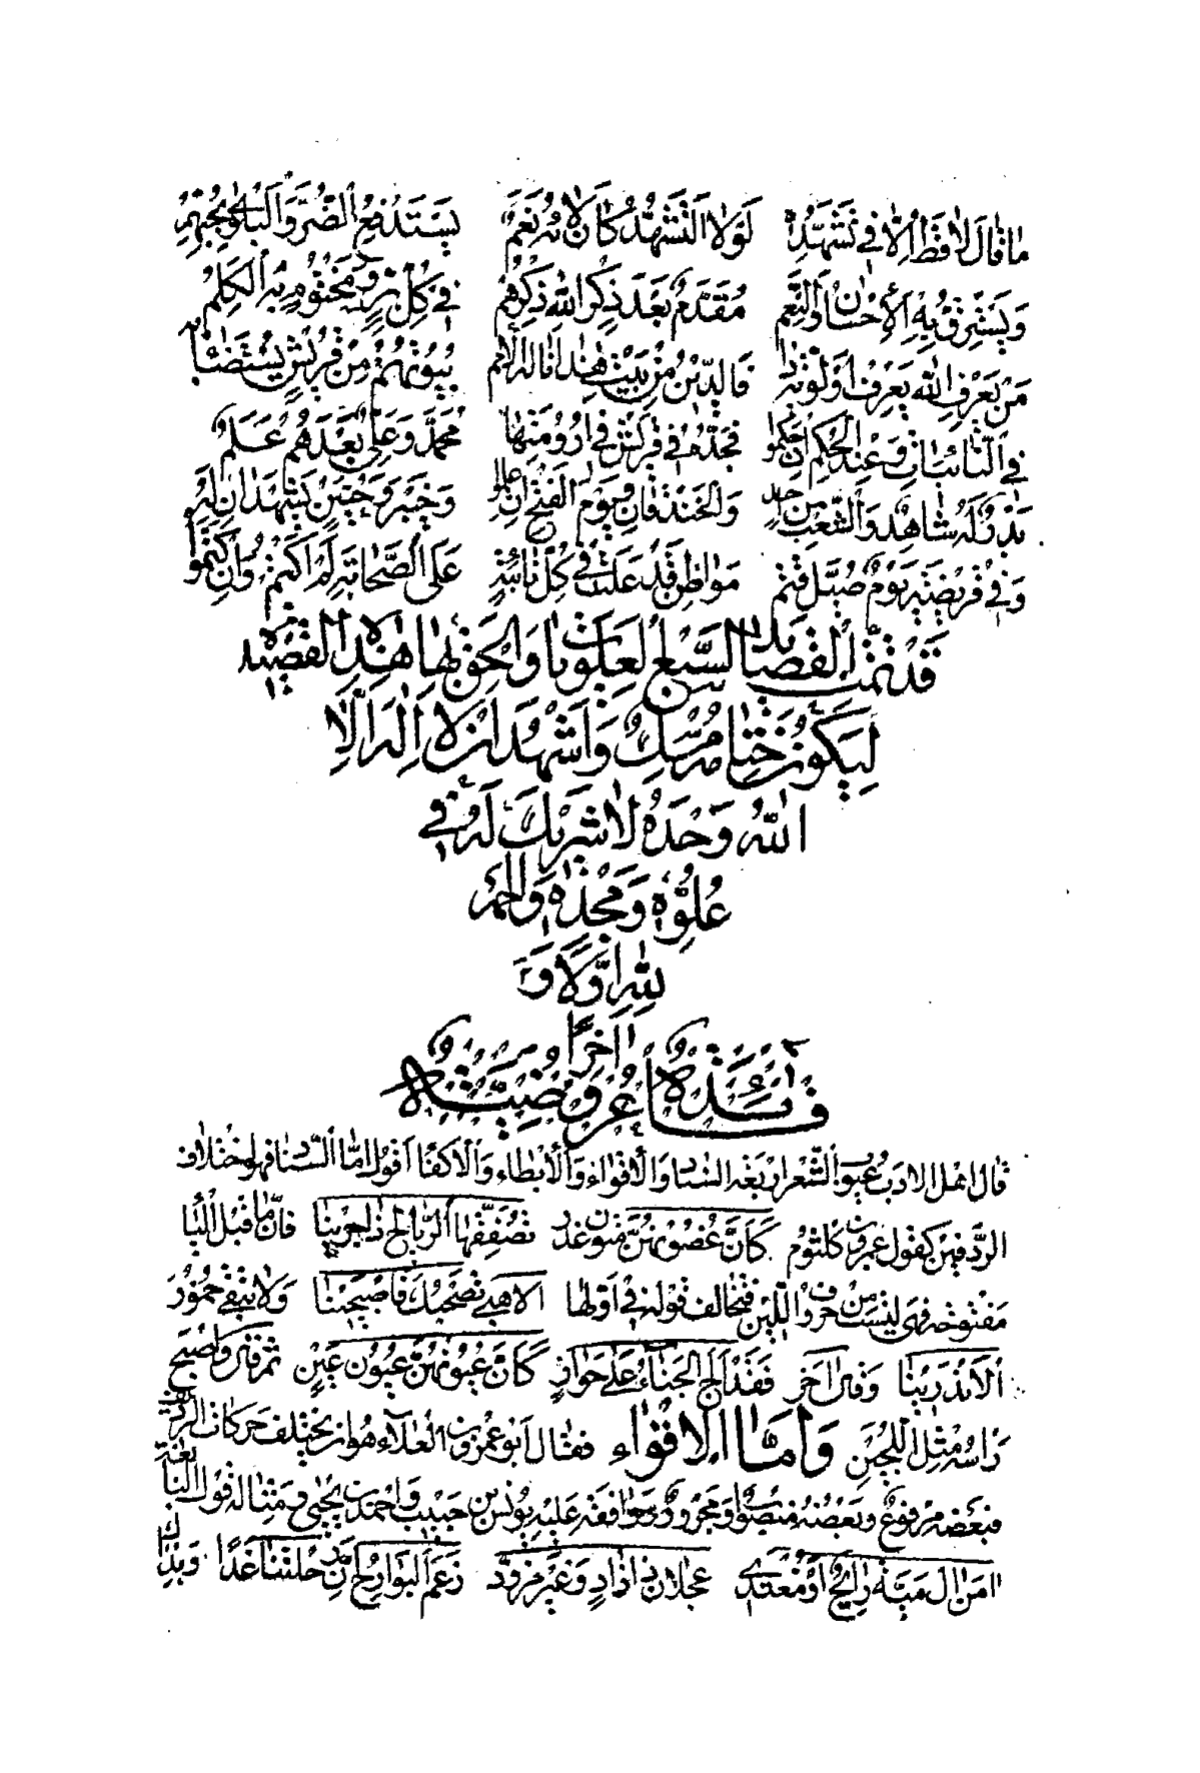 ما قَالَ لا قَطُّ اِلّا فِي تَشَهُّدِهٖ لَوْلا التَّشَهُّدُ كَانَ لاؤُهُ نَعَمُ يُسْتَدْفَعُ الضُّرُّ وَالْبَلْوٰى بِحُبِّهِمُ
وَيُسْتَرَقُّ بِهِ الْاِحْسَانُ وَالنِّعَمُ مُقَدَّمٌ بَعْدَ ذِكْرِ اللهِ ذِكْرُهُمُ فِي كُلِّ بِرٍّ وَمَخْتُومٌ بِهِ الْكَلِمُ
مَنْ يَعْرِفِ اللهَ يَعْرِفْ اَوَّلِيَّةَ ذَا فَالدِّيْنُ مِنْ بَيْتِ هٰذَا نَالَهُ الْاُمَمُ بُيُوتُهُمْ مِنْ قُرَيْشٍ يُسْتَضَاءُ بِهَا
فِي النَّائِبَاتِ وَعِنْدَ الْحُكْمِ اِنْ حَكَمُوا فَجَدُّهُ فِي قُرَيْشٍ فِي اَرُومَتِهَا مُحَمَّدٌ وَعَلِيٌّ بَعْدَهُمْ عَلَمُ
بَدْرٌ لَهُ شَاهِدٌ وَالشِّعْبُ مِنْ اُحُدٍ وَالْخَنْدَقَانِ وَيَوْمُ الْفَتْحِ اِنْ عَلِمُوا وَخَيْبَرٌ وَحُنَيْنٌ يَشْهَدَانِ لَهُ
وَفِي قُرَيْضَةِ يَوْمٌ صُيَّلٌ قَتِمُ مَوَاطِنُ قَدْ عَلَتْ فِي كُلِّ نَائِبَةٍ عَلَى الصَّحَابَةِ لَمْ اَكْتُمْ وَاِنْ كَتَمُوا
قَدْ تَمَّتِ الْقَصَايِدُ السَّبْعُ الْعَلَوِيَّاتُ وَاُلْحِقَ بِهَا هٰذِهِ الْقَصِيْدَةُ
لِيَكُونَ خِتَامُهُ مِسْكٌ وَاَشْهَدُ اَنْ لا اِلٰهَ اِلّا
اللهُ وَحْدَهُ لا شَرِيْكَ لَهُ فِي
عُلُوِّهٖ وَمَجْدِهٖ وَالْحَمْدُ
لِلّٰهِ اَوَّلًا وَ
اٰخِرًا
فَائِدَةٌ عُرُوضِيَّةٌ
قال اهل الادب عيوب الشعر اربعة السناد والاقواء والايطاء والاكفاء اقول اما السناد فهو اختلاف
الردفين كقول عمرو بن كلثوم كَاَنَّ غُضُونَهُنَّ مُتُونُ غُدْرٍ تُصَفِّقُهَا الرِّيَاحُ اِذَا جَرَيْنَا فان ما قبل الياء
مفتوحة فهى ليست من حروف اللين فتخالف قوله فى اولها الا هبى بصحنك فاصبحينا ولا تبقى خمور
الاندرينا وقول آخر فقد الج الخباء على جوار كَاَنَّ عيونهن عيون عين ثم قال واصبح
راسه مثل اللجين وَاَمَّا الاقْوَاء فقال ابو عمرو بن العلاء هو ان يختلف حركات الروى
فبعضه مرفوع وبعضه منصوب او مجرور ووافقه عليه يونس بن حبيب واحمد بن يحيى ومثاله قول النابغة
امن آل مية رائح او مغتدى عجلان ذا زاد وغير مزود زعم البوارح ان رحلتنا غدا وبذاك